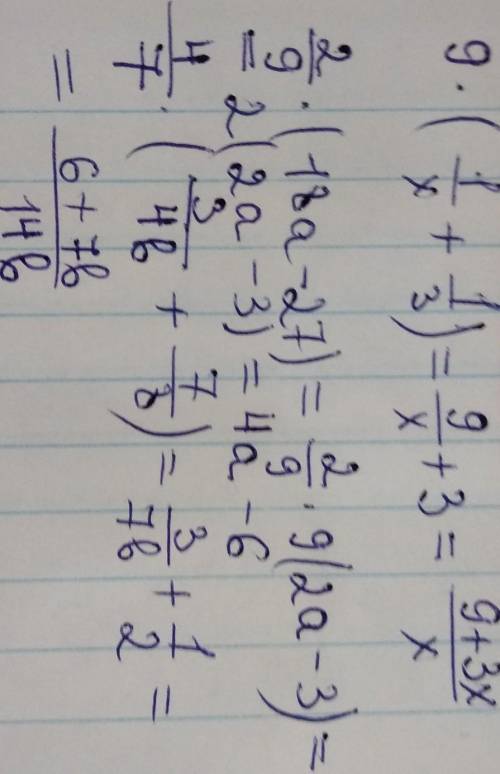 9 · ( 1/x + 1/3 ) = 9/x + 3 = 9+3x/x
2/9 · ( 18a - 27 ) = 2/9 · 9(2a - 3) =
= 2(2a - 3) = 4a - 6
4/7 · ( 3/4в + 7/8 ) = 3/7в + 1/2 =
= 6 + 7в/14в